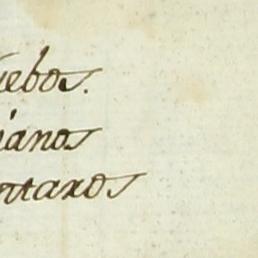 uebos.
ianos
ntaros